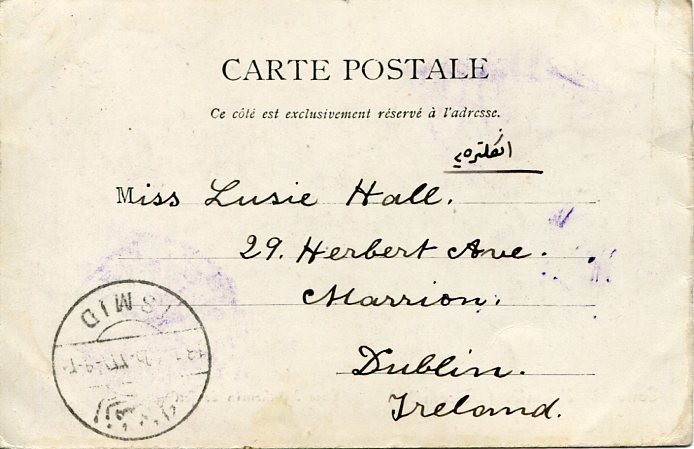 CARTE POSTALE
Ce côté est exclusivement réservé à l'adresse.
انكلتره يه
Miss Lusie Hall.
29. Herbert Ave.
Marrion.
Dublin.
Ireland.
ISMID